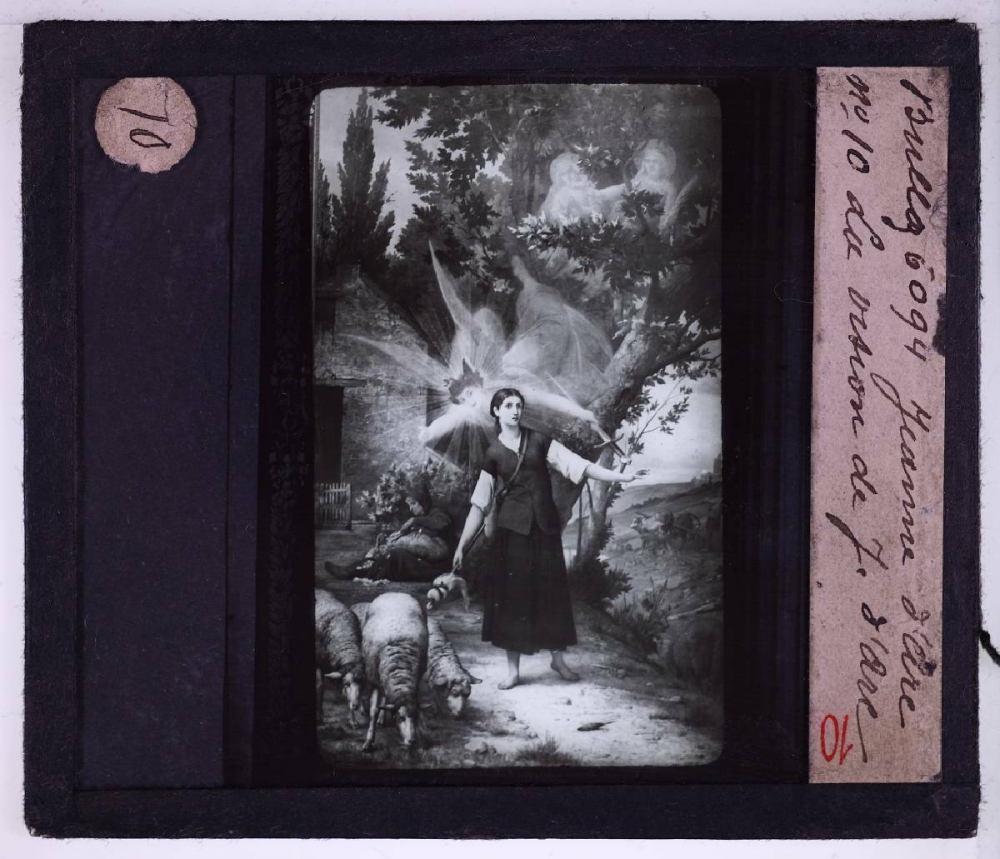 10
6094 Jeanne d'Arc
No 10 La vision de J. d'arc
10